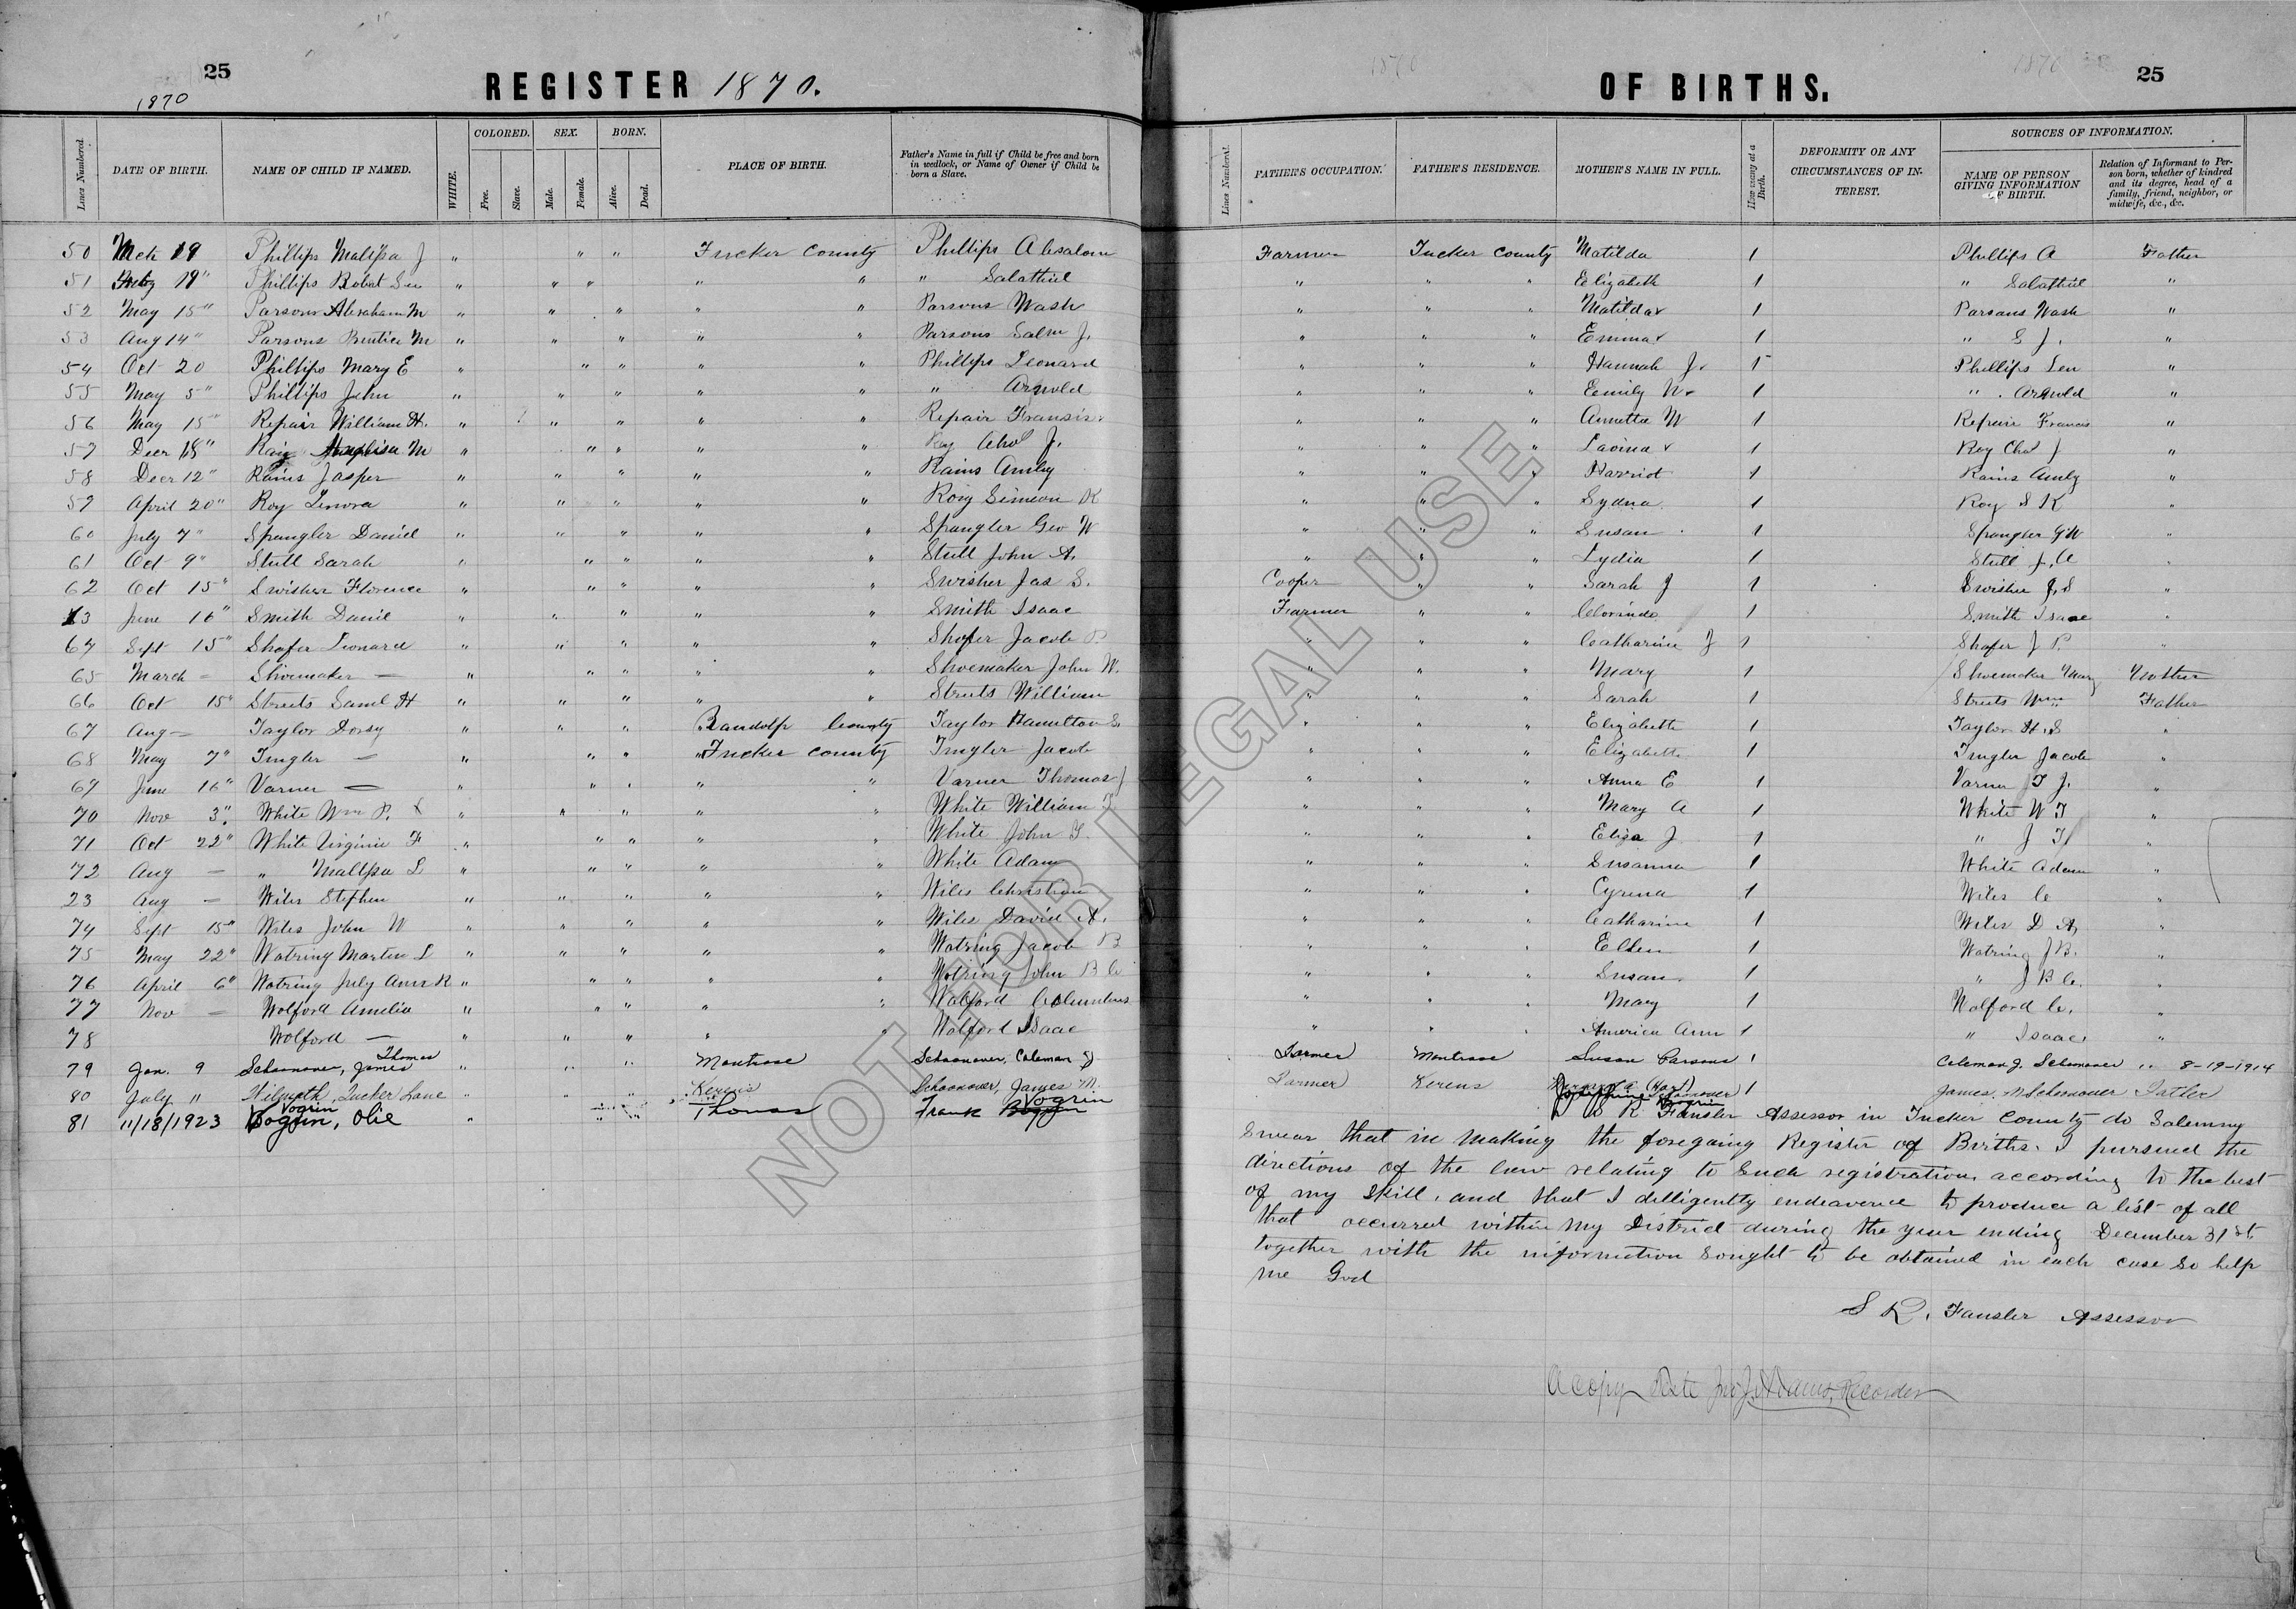 25
REGISTER 1870.
1870
Lines Numbered. DATE OF BIRTH. NAME OF CHILD IF NAMED. WHITE. COLORED. Free. Slave. SEX. Male. Female. BORN. Alive. Dead. PLACE OF BIRTH. Father's Name in full if Child be free and born in wedlock, or Name of Owner if Child be born a Slave.
50 Mch 19 Phillips Malissa J " " " Tucker County Phillips Absalom
51 19" Phillips Robat " " " " " " Salathiel
52 May 15" Parsons Abraham M " " " " " Parsons Wash
53 Aug 14" Parsons Bentia M " " " " " Parsons Salm J.
54 Oct 20 Phillips Mary E " " " " " Phillips Leonard
55 May 5" Phillips John " " " " " " Arnold
56 May 15" Repair William H. " " " " " Repair Fransis
57 Decr 18" M " " " " " Roy Chas J.
58 Decr 12" Rains Jasper " " " " " Rains Amby
59 April 20" Roy Lenora " " " " " Roy Simeon K
60 July 7" Spangler Daniel " " " " " Spangler Geo W
61 Oct 9" Stull Sarah " " " " " Stull John A.
62 Oct 15" Swisher Florence " " " " " Swisher Jas S.
63 June 16" Smith Danil " " " " " Smith Isaac
64 Sept 15" Shafer Leonard " " " " " Shafer Jacob P.
65 March – Shoemaker – " " " " " Shoemaker John W.
66 Oct 15" Streets Saml H " " " " " Streets William
67 Aug – Taylor Dorsy " " " Randolp County Taylor Hamilton S.
68 May 7" Tingler – " " " Tucker County Tingler Jacob
69 June 16" Varner – " " " " " Varner Thomas J
70 Nov 3" White Wm P. X " " " " " White William T
71 Oct 22" White Virginia F " " " " " White John T.
72 Aug – " Malissa L " " " " " White Adam
23 Aug – Wiles Stephen " " " " " Wiles Christian
74 Sept 15" Wiles John W " " " " " Wiles David A.
75 May 22" Watring Martin L " " " " " Watring Jacob B
76 April 6" Watring July Ann R " " " " " Watring John B C
77 Nov – Wolford Amelia " " " " " Walford Columbus
78 Wolford – " " " " " Walford Isaac
79 Jan. 9 Schoonover, James Thomas " " " Montrose Schoonover, Coleman J
80 July 11 Wilmoth, Tucker Lane " " " Kerens Schoonover, James M.
81 11/18/1923 Vogrin, Olie " " " Thomas Frank Vogrin
OF BIRTHS.
25
1870 1870
Lines Numbered. FATHER'S OCCUPATION. FATHER'S RESIDENCE. MOTHER'S NAME IN FULL. How many at a Birth. DEFORMITY OR ANY CIRCUMSTANCES OF INTEREST. SOURCES OF INFORMATION. NAME OF PERSON GIVING INFORMATION OF BIRTH. Relation of Informant to Person born, whether of kindred and its degree, head of a family, friend, neighbor, or midwife, &c., &c.
Farmer Tucker County Matilda 1 Phillips A Father
" " " Elizabeth 1 " Salathiel "
" " " Matilda 1 Parsons Wash "
" " " Emma 1 " S J. "
" " " Hannah J. Phillips Len "
" " " Emily 1 " Arnold "
" " " Annetta W 1 Repair Francis "
" " " Lavina 1 Roy Chas J "
" " " Harriot 1 Rains Amby "
" " " Sydna 1 Roy S K "
" " " Susan 1 Spangler G W "
" " " Lydia 1 Stull J. A "
Cooper " " Sarah J 1 Swisher J. S "
Farmer " " Clorinda 1 Smith Isaac "
" " " Catharine J 1 Shafer J P. "
" " " Mary 1 Shoemaker Mary Mother
" " " Sarah 1 Streets Wm Father
" " " Elizabeth 1 Taylor H. S "
" " " Elizabeth 1 Tingler Jacob "
" " " Anna E 1 Varner T J. "
" " " Mary A 1 White W T "
" " " Eliza J 1 " J T "
" " " Susanna 1 White Adam "
" " " Cyrena 1 Wiles C "
" " " Catharine 1 Wiles D A. "
" " " Ellen 1 Watring J B. "
" " " Susan 1 " J B C. "
" " " Mary 1 Walford C. "
" " " America Ann 1 " Isaac "
Farmer Montrose Susan Parsons 1 Coleman J. Schoonover " 8-19-1914
Farmer Kerens (Hart) Schoonover 1 James. M Schoonover Father
Josephine Vogrin
I S R Fansler Assessor in Tucker County do Solemny
Swear that in making the foregoing Register of Births. I pursued the
directions of the law relating to Such registration. according to the best
of my Skill. and that I dilligently endeavered to produce a list of all
that occurred within my District during the year ending December 31st
together with the information Sought to be obtained in each case So help
me God
S R. Fansler Assessor
A copy Recorder
NOT FOR LEGAL USE